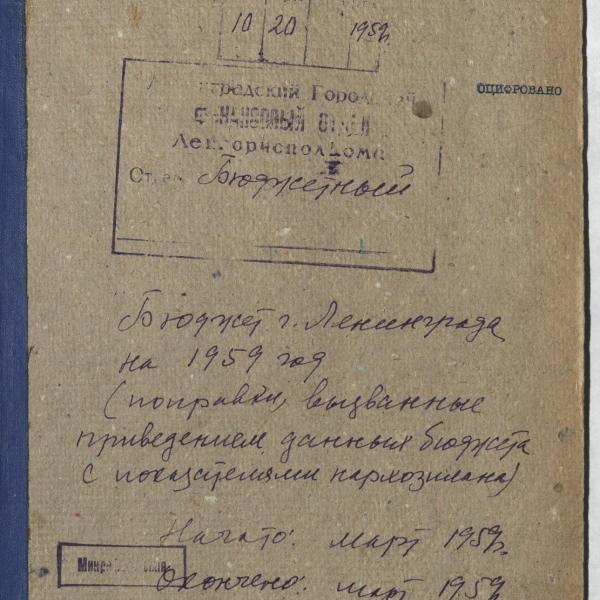 10 20 1959г.
ОЦИФРОВАНО
Городской
ФИНАНСОВЫЙ ОТДЕЛ
Ленгорисполкома
Бюджетный
Бюджет г. Ленинграда
на 1959 год
(поправки, вызванные
приведением данных бюджета
с показателями нархозплана)
Начато: март 1959г.
Окончено: март 1959г.